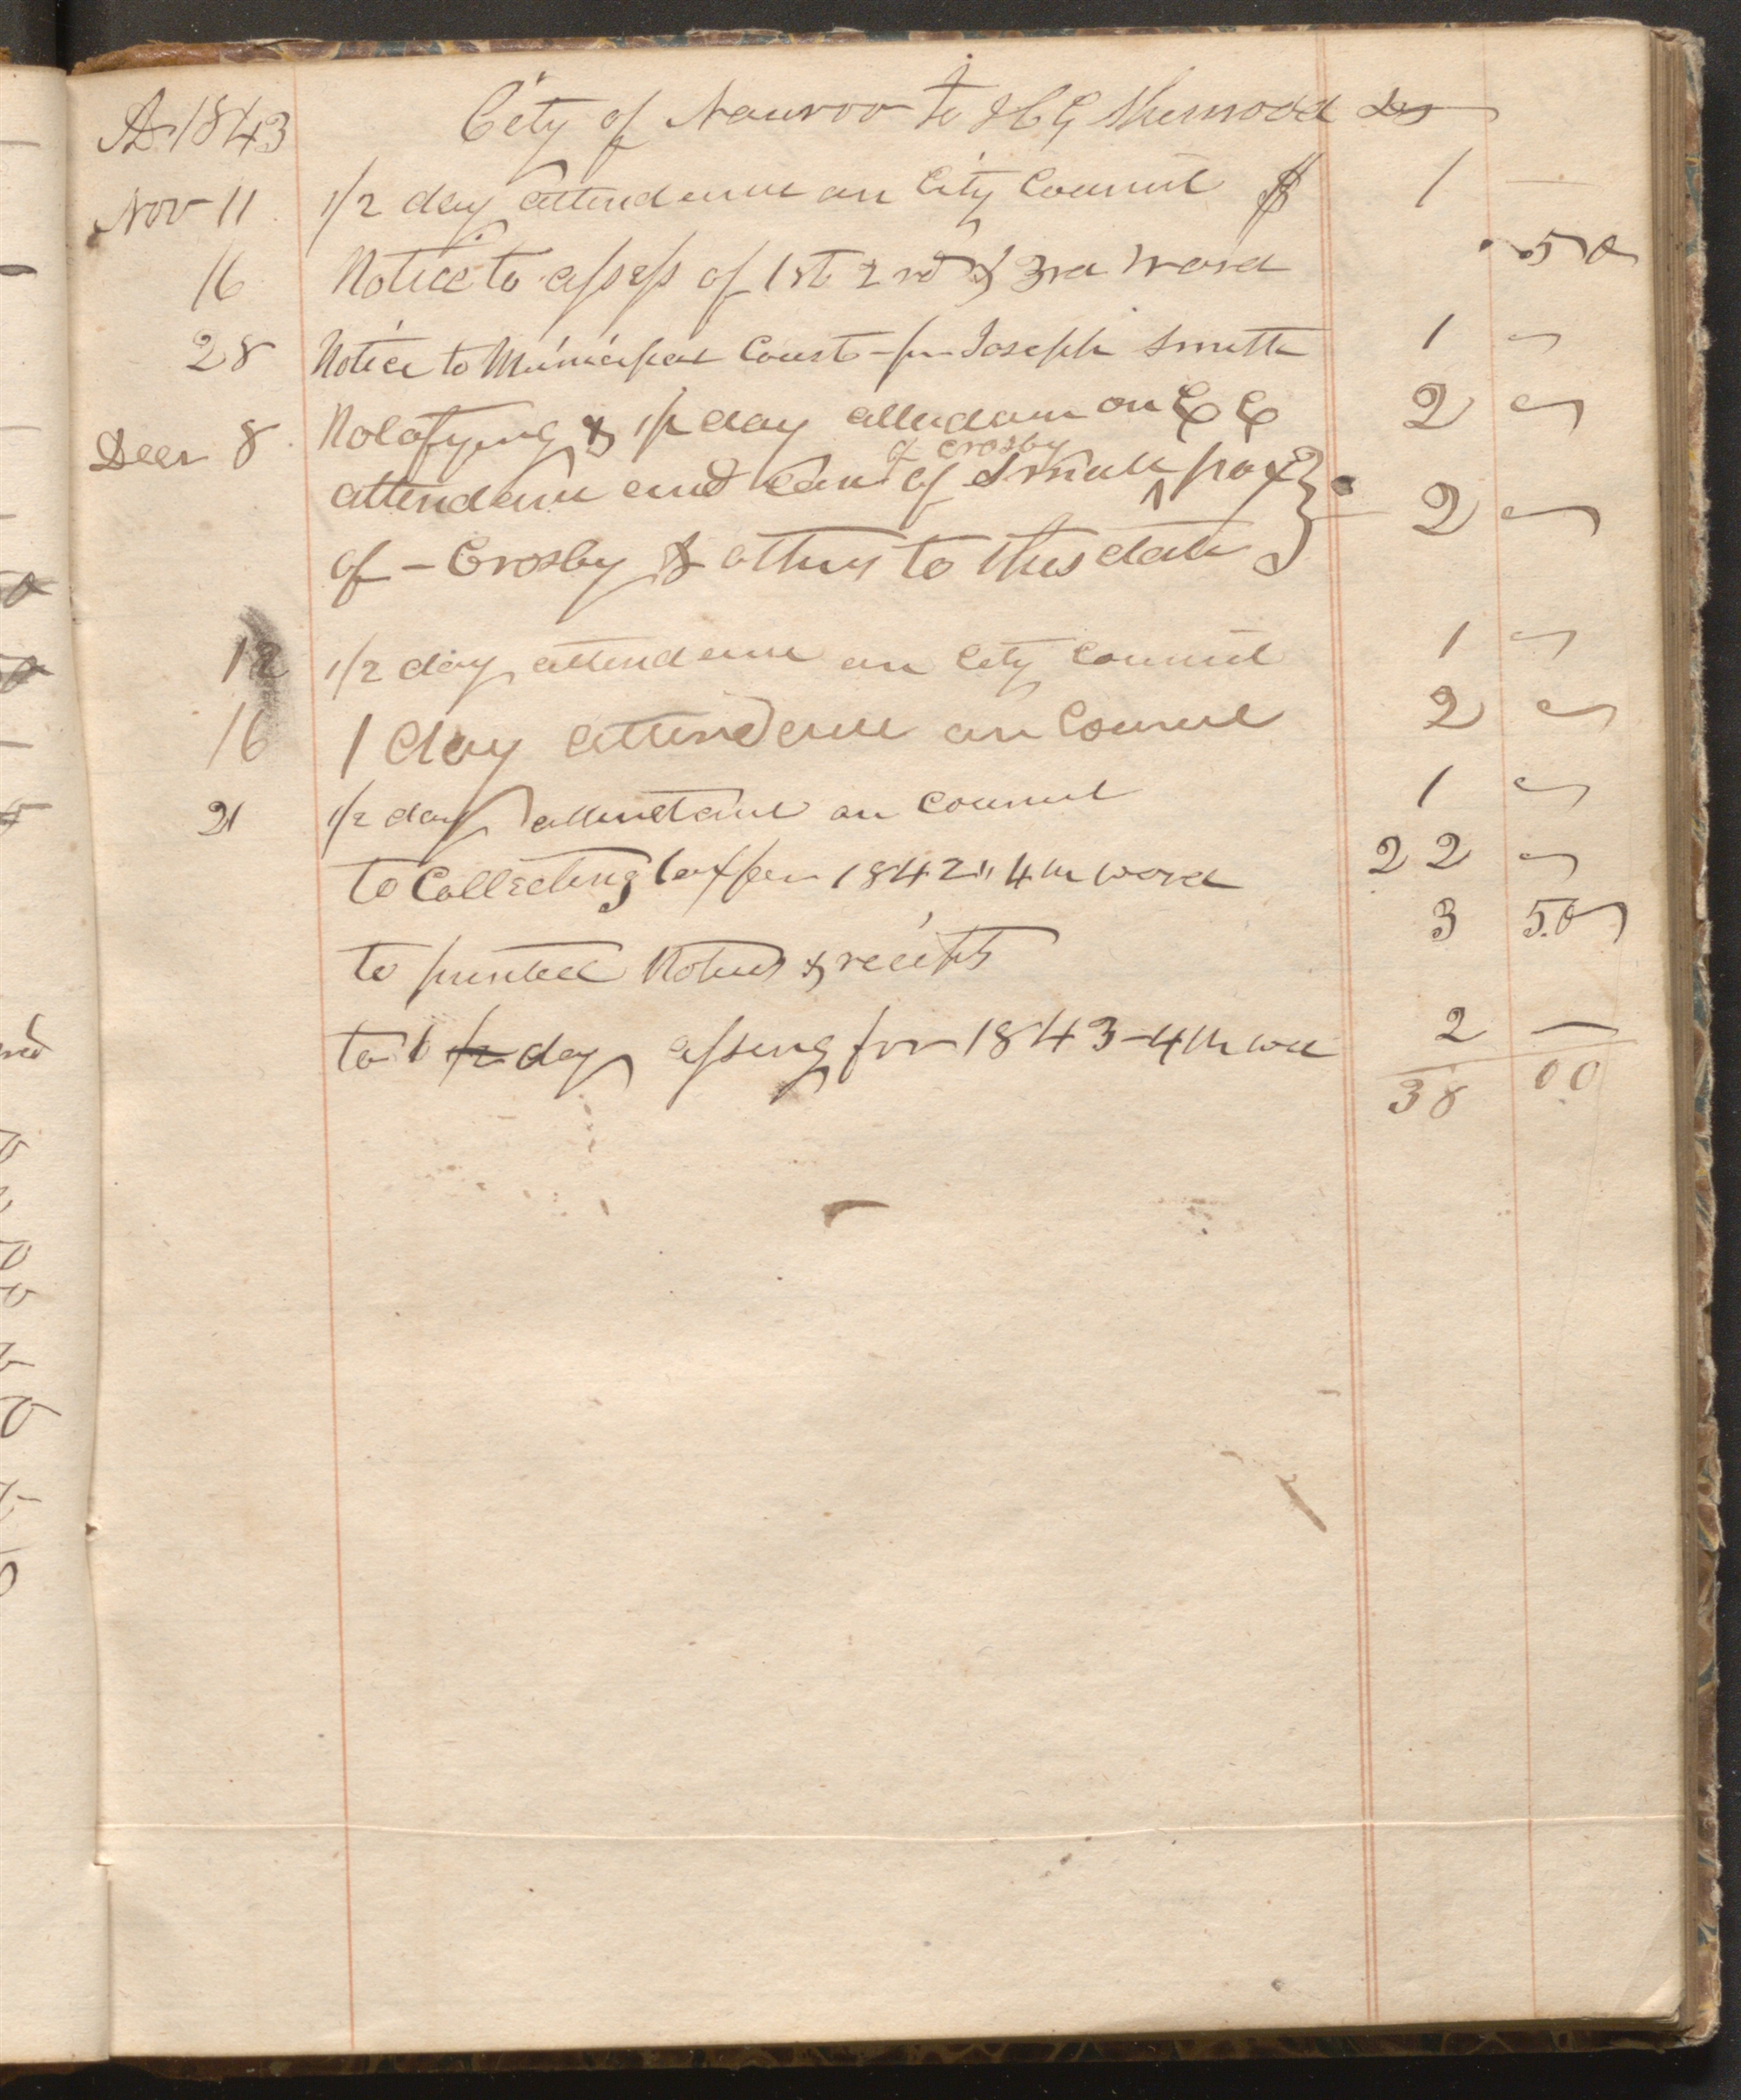 AD 1843 City of Nauvoo to H G Sherwood Dr
Nov 11 1/2 day attendence on City Council $ 1 —
16 Notice to assess of 1st 2nd & 3rd Ward 50
28 Notice to Municipal Court for Joseph Smith 1 –
Decr 8 Notofying & 1/2 day attendance on C C 2 –
of Crosby
attendance and care of Small ^ pox }
of – Crosby & others to this date } 2 –
12 1/2 day attendence on City Council 1 –
16 1 day attendence on Council 2 –
21 1/2 day attendance on Council 1 –
to Collecting tax for 1842 " 4th Ward 22 –
to printed Notices & recipts 3 50
to 1 1/2 day assesing for 1843 – 4th wd 2 —
38 00